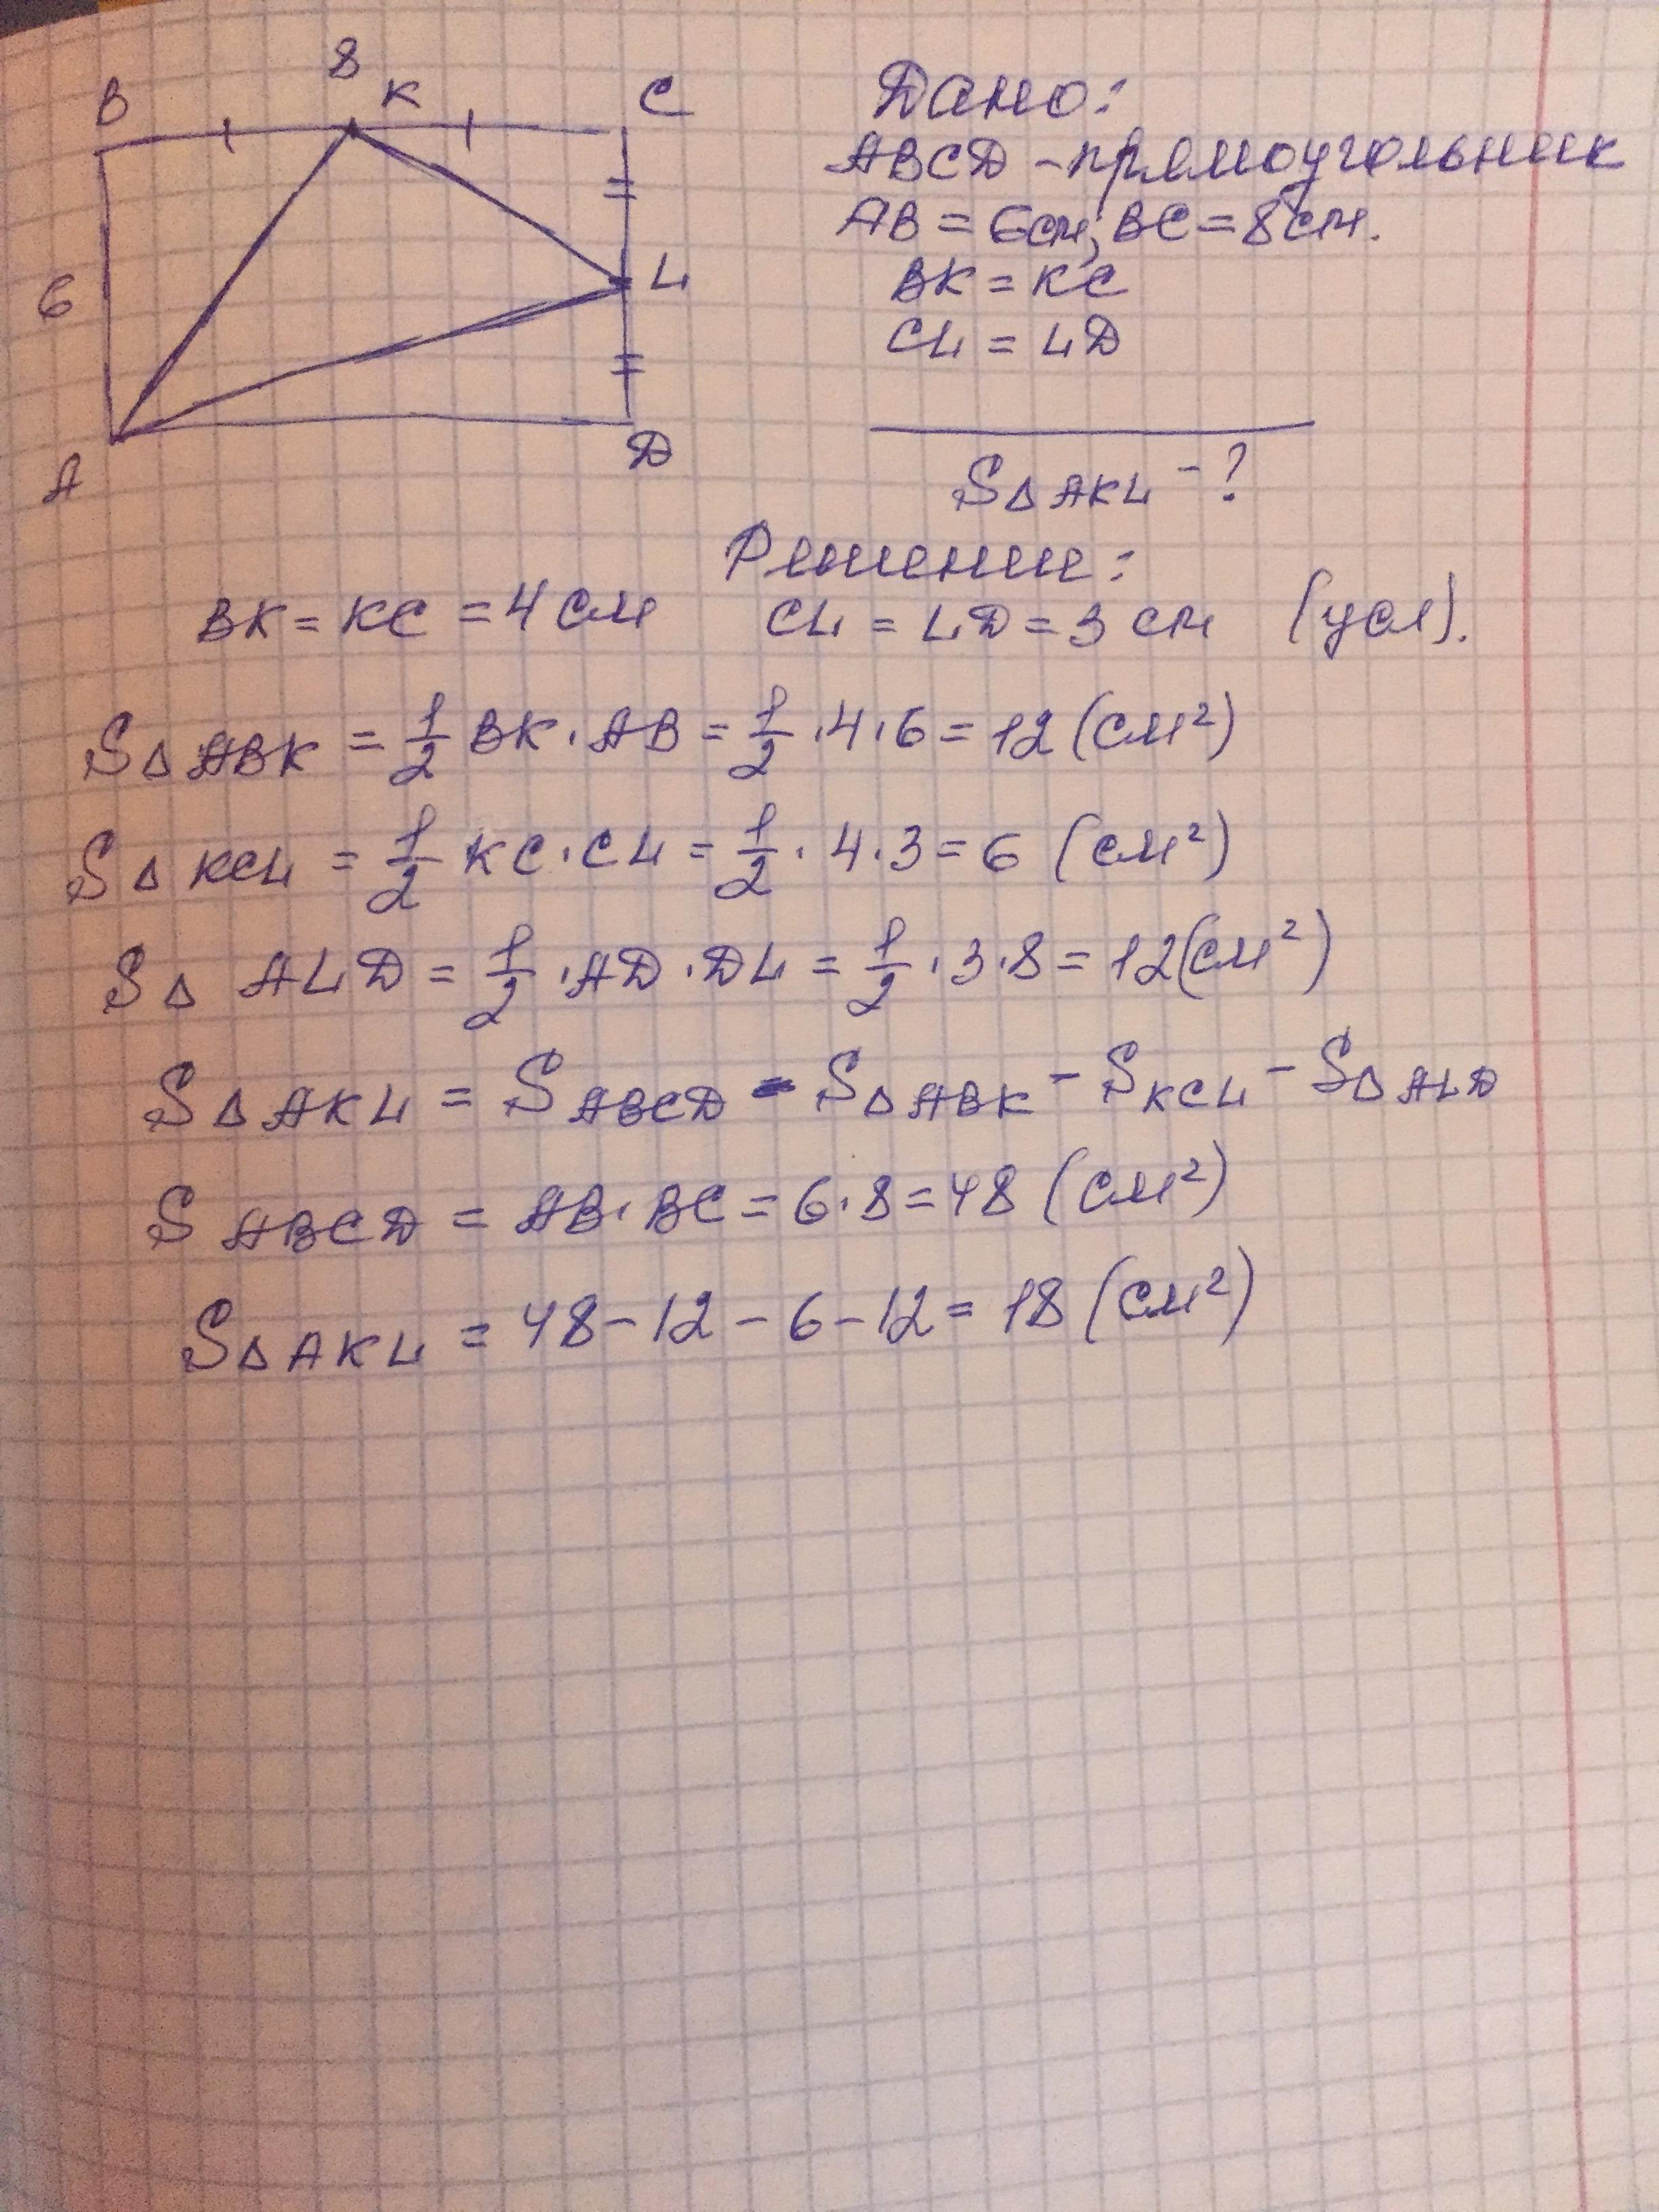 8
В К С
6 L
А D
Дано:
ABCD - прямоугольник
AB = 6см; BC = 8см.
BK = KC
CL = LD
S△AKL - ?
Решение:
BK = KC = 4 см CL = LD = 3 см (усл).
S△ABK = 1/2 BK · AB = 1/2 · 4 · 6 = 12 (см²)
S△KCL = 1/2 KC · CL = 1/2 · 4 · 3 = 6 (см²)
S△ ALD = 1/2 · AD · DL = 1/2 · 3 · 8 = 12 (см²)
S△AKL = S ABCD - S△ABK - S KCL - S△ALD
S ABCD = AB · BC = 6 · 8 = 48 (см²)
S△AKL = 48 - 12 - 6 - 12 = 18 (см²)